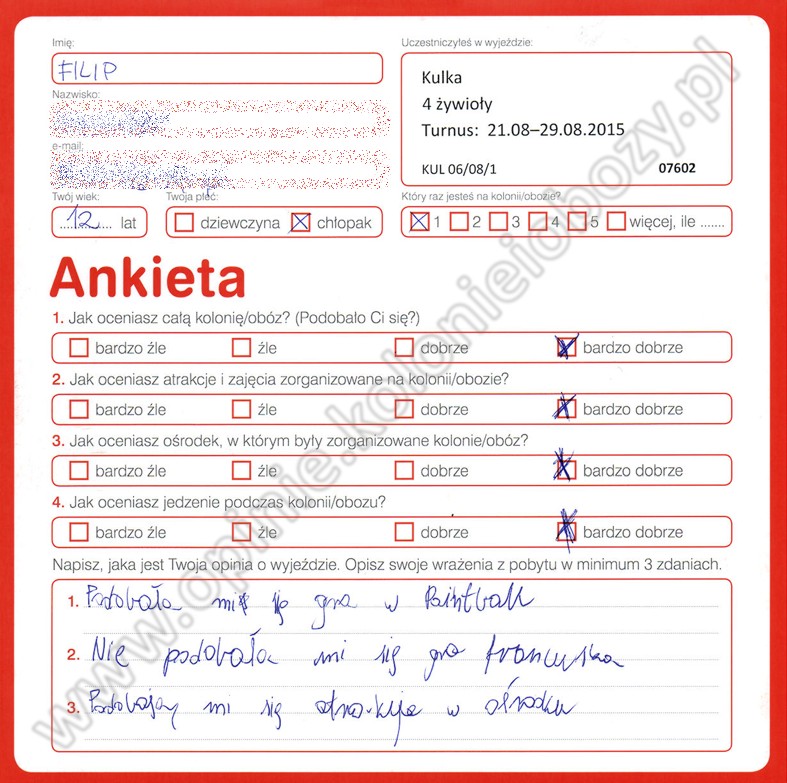 Imię:
FILIP
Nazwisko:
e-mail:
Twój wiek:
12 lat
Twoja płeć:
dziewczyna chłopak
Uczestniczyłeś w wyjeździe:
Kulka
4 żywioły
Turnus: 21.08–29.08.2015
KUL 06/08/1 07602
Który raz jesteś na kolonii/obozie?
1 2 3 4 5 więcej, ile .......
Ankieta
1. Jak oceniasz całą kolonię/obóz? (Podobało Ci się?)
bardzo źle źle dobrze bardzo dobrze
2. Jak oceniasz atrakcje i zajęcia zorganizowane na kolonii/obozie?
bardzo źle źle dobrze bardzo dobrze
3. Jak oceniasz ośrodek, w którym były zorganizowane kolonie/obóz?
bardzo źle źle dobrze bardzo dobrze
4. Jak oceniasz jedzenie podczas kolonii/obozu?
bardzo źle źle dobrze bardzo dobrze
Napisz, jaka jest Twoja opinia o wyjeździe. Opisz swoje wrażenia z pobytu w minimum 3 zdaniach.
1. Podobała mi się gra w Paintball
2. Nie podobała mi się gra francuska
3. Podobają mi się atrakcje w ośrodku
www.opinie.kolonieiobozy.pl